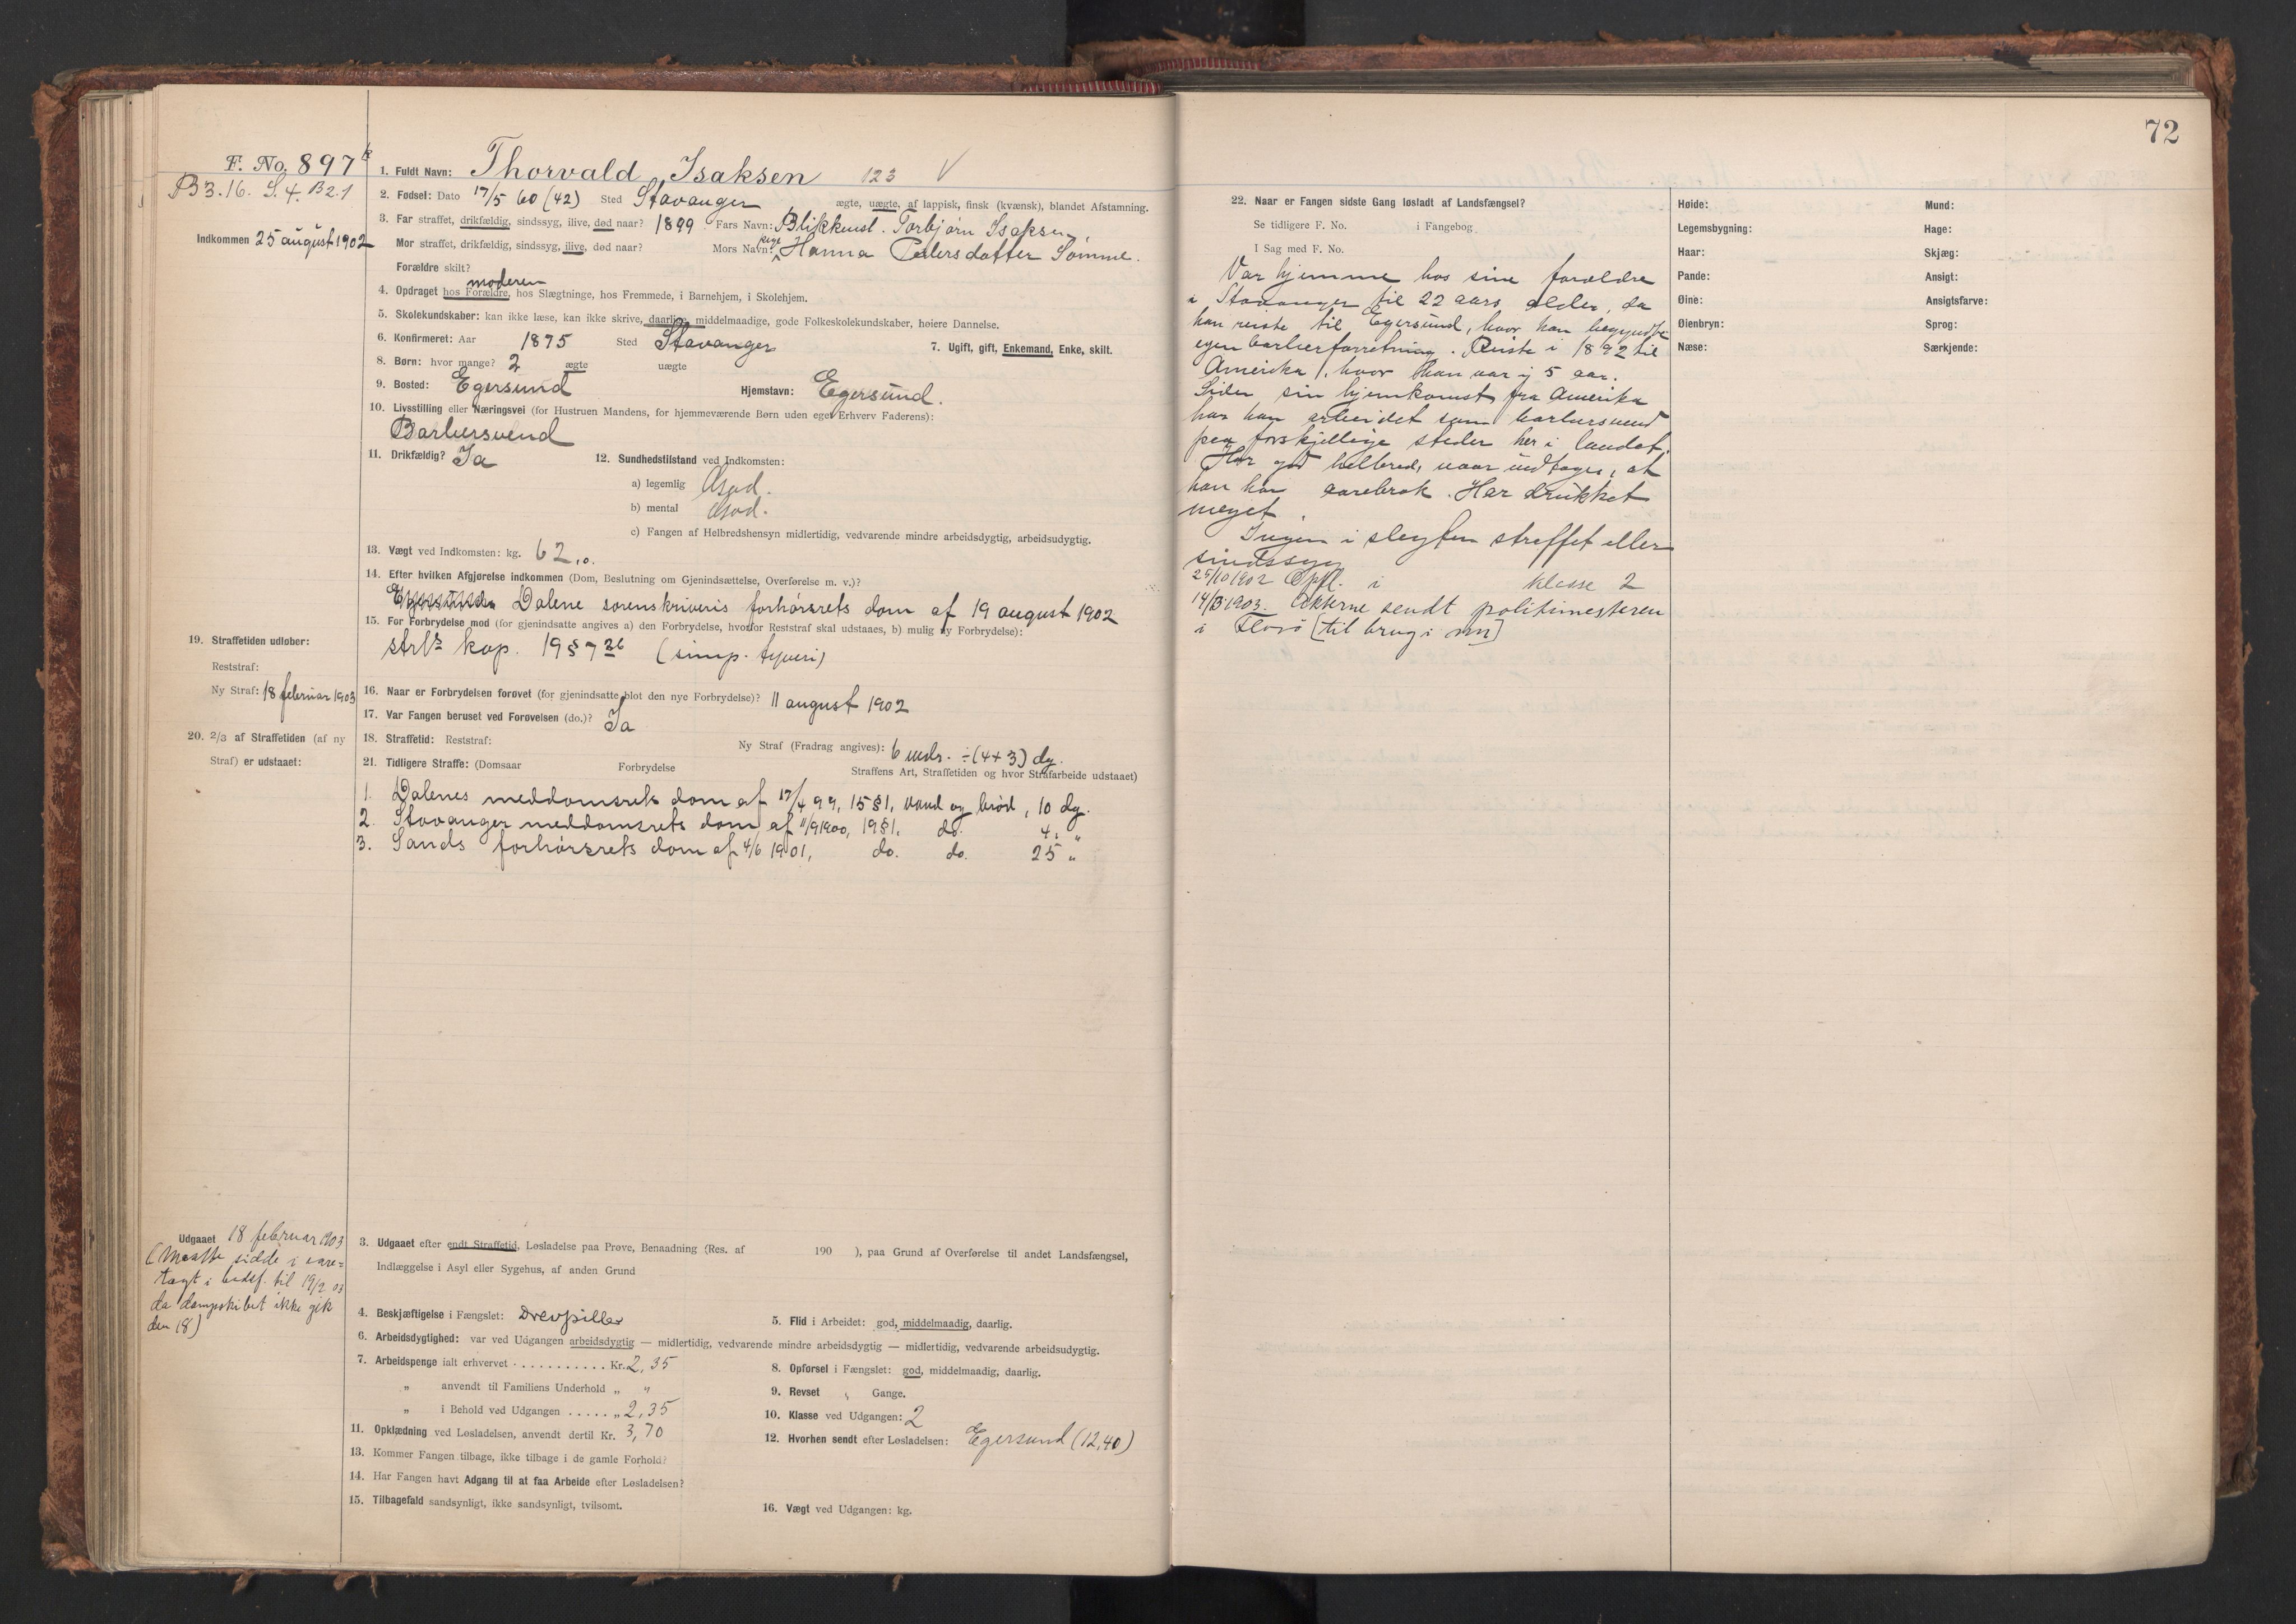 72
F. No. 897
B 3.16. S. 4. B 2.1
Indkommen 25 august 1902
1. Fuldt Navn: Thorvald Isaksen 123 V
2. Fødsel: Dato 17/5 60 (42) Sted Stavanger ægte, uægte, af lappisk, finsk (kvænsk), blandet Afstamning.
3. Far straffet, drikfældig, sindssyg, ilive, død naar? 1899 Fars Navn: Blikkensl. Torbjørn Isaksen,
Mor straffet, drikfældig, sindssyg, ilive, død naar? Mors Navn: pige Hanna Pedersdatter Sømme.
Forældre skilt?
moderen
4. Opdraget hos Forældre, hos Slægtninge, hos Fremmede, i Barnehjem, i Skolehjem.
5. Skolekundskaber: kan ikke læse, kan ikke skrive, daarlige, middelmaadige, gode Folkeskolekundskaber, høiere Dannelse.
6. Konfirmeret: Aar 1875 Sted Stavanger 7. Ugift, gift, Enkemand, Enke, skilt.
8. Børn: hvor mange? 2 ægte uægte
9. Bosted: Egersund Hjemstavn: Egersund.
10. Livsstilling eller Næringsvei (for Hustruen Mandens, for hjemmeværende Børn uden eget Erhverv Faderens):
Barbersvend
11. Drikfældig? Ja 12. Sundhedstilstand ved Indkomsten:
a) legemlig God.
b) mental God.
c) Fangen af Helbredshensyn midlertidig, vedvarende mindre arbeidsdygtig, arbeidsudygtig.
13. Vægt ved Indkomsten: kg. 62,0.
14. Efter hvilken Afgjørelse indkommen (Dom, Beslutning om Gjenindsættelse, Overførelse m. v.)?
Dalene sorenskriveris forhørsrets dom af 19 august 1902
15. For Forbrydelse mod (for gjenindsatte angives a) den Forbrydelse, hvorfor Reststraf skal udstaaes, b) mulig ny Forbrydelse):
strls kap. 19 § 7 (simp. tyveri)
19. Straffetiden udløber:
Reststraf:
Ny Straf: 18 februar 1903
16. Naar er Forbrydelsen forøvet (for gjenindsatte blot den nye Forbrydelse)? 11 august 1902
17. Var Fangen beruset ved Forøvelsen (do.)? Ja
20. 2/3 af Straffetiden (af ny
Straf) er udstaaet:
18. Straffetid: Reststraf: Ny Straf (Fradrag angives): 6 mdr. ÷ (4+3) dg.
21. Tidligere Straffe: (Domsaar Forbrydelse Straffens Art, Straffetiden og hvor Strafarbeide udstaaet)
1. Dalenes meddomsrets dom af 17/4 99, 15 § 1, vand og brød, 10 dg.
2. Stavanger meddomsrets dom af 11/9 1900, 19 § 1, do. 4. "
3. Sands forhørsrets dom af 4/6 1901, do. do. 25 "
Udgaaet 18 februar 1903
(Maatte sidde i vare=
tægt i til 19/2 03
da dampskibet ikke gik
den 18)
3. Udgaaet efter endt Straffetid, Løsladelse paa Prøve, Benaadning (Res. af 190 ), paa Grund af Overførelse til andet Landsfængsel,
Indlæggelse i Asyl eller Sygehus, af anden Grund
4. Beskjæftigelse i Fængslet: Drevpiller 5. Flid i Arbeidet: god, middelmaadig, daarlig.
6. Arbeidsdygtighed: var ved Udgangen arbeidsdygtig — midlertidig, vedvarende mindre arbeidsdygtig — midlertidig, vedvarende arbeidsudygtig.
7. Arbeidspenge ialt erhvervet . . . . . . . . . . . Kr. 2,35 8. Opførsel i Fængslet: god, middelmaadig, daarlig.
" anvendt til Familiens Underhold " " 9. Revset " Gange.
" i Behold ved Udgangen . . . . . " 2,35 10. Klasse ved Udgangen: 2
11. Opklædning ved Løsladelsen, anvendt dertil Kr. 3,70 12. Hvorhen sendt efter Løsladelsen: Egersund (12,40)
13. Kommer Fangen tilbage, ikke tilbage i de gamle Forhold?
14. Har Fangen havt Adgang til at faa Arbeide efter Løsladelsen?
15. Tilbagefald sandsynligt, ikke sandsynligt, tvilsomt. 16. Vægt ved Udgangen: kg.
22. Naar er Fangen sidste Gang løsladt af Landsfængsel?
Se tidligere F. No. i Fangebog
I Sag med F. No.
Var hjemme hos sine forældre
i Stavanger til 22 aars alder, da
han reiste til Egersund, hvor han begyndte
egen barberforretning. Reiste i 1892 til
Amerika, hvor han var i 5 aar.
Siden sin hjemkomst fra Amerika
har han arbeidet som barbersvend
paa forskjellige steder her i landet.
Har god helbred, naar undtages, at
han har aarebrok. Har drukket
meget.
Ingen i slegten straffet eller
sindssyg
25/10 1902 Opfl. i klasse 2
14/3 1903. Akterne sendt politimesteren
i Florø [til brug i ]
Høide: Mund:
Legemsbygning: Hage:
Haar: Skjæg:
Pande: Ansigt:
Øine: Ansigtsfarve:
Øienbryn: Sprog:
Næse: Særkjende: